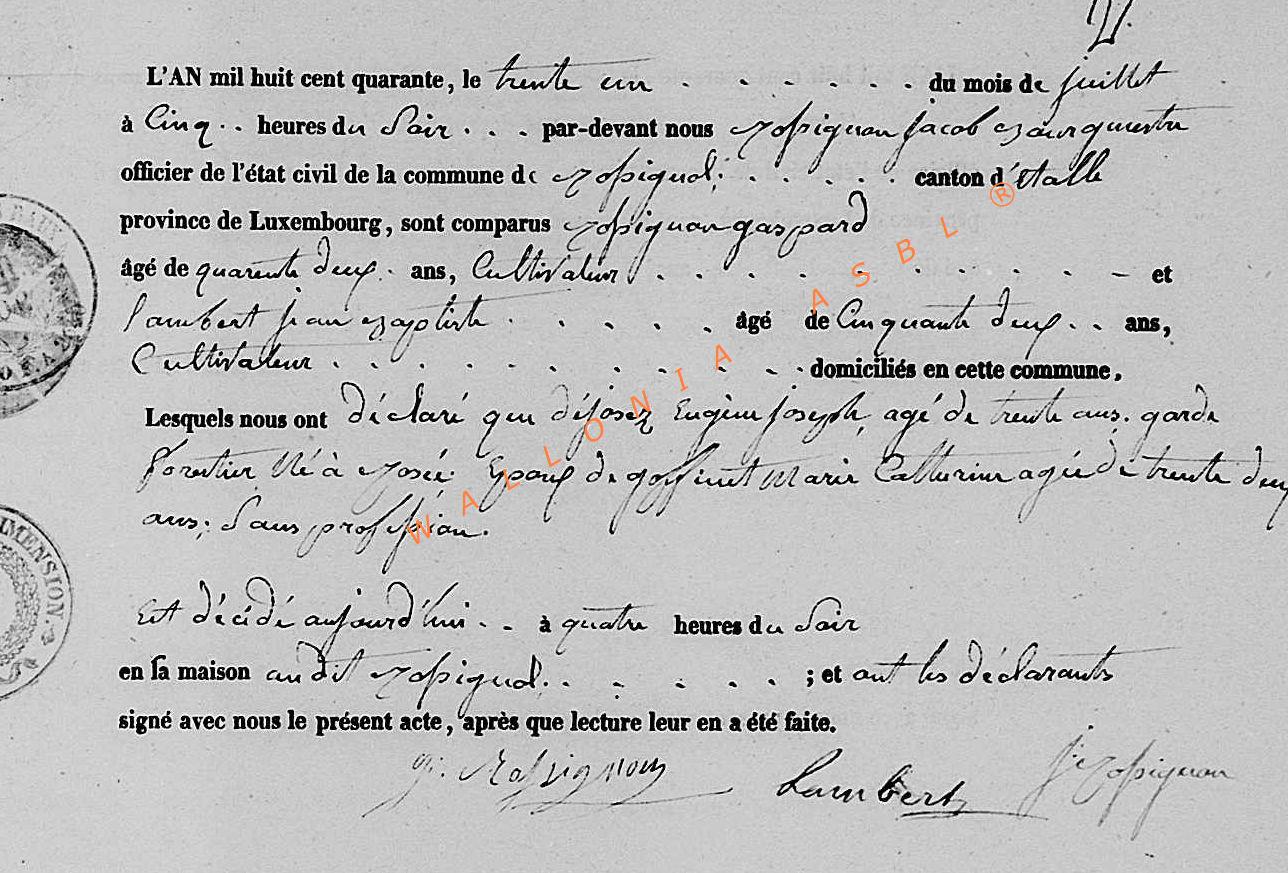 L'AN mil huit cent quarante, le trente un . . . . . . du mois de juillet
à Cinq . . heures du Soir . . . par-devant nous Rossignon Jacob Bourguestre
officier de l'état civil de la commune de Rossignol; . . . . . canton d'Etalle
province de Luxembourg, sont comparus Rossignon gaspard
âgé de quarente deux . ans, Cultivateur . . . . . . . . . . . – et
Lambert jean Baptiste . . . . . . âgé de Cinquante deux . . ans,
Cultivateur . . . . . . . . . . . domiciliés en cette commune,
Lesquels nous ont déclaré que déjosez Eugène Joseph, agé de trente ans. garde
forestier Né à Rosée. Epoux de goffinet Marie Catherine agée de trente deux
ans; Sans profession.
Est décidé aujourd'hui . . à quatre heures du Soir
en sa maison audit Rossignol; . . . . . ; et ont les déclarants
signé avec nous le présent acte, après que lecture leur en a été faite.
g. Rossignon Lambert J. Rossignon
WALLONIA ASBL ®
IMENSION.